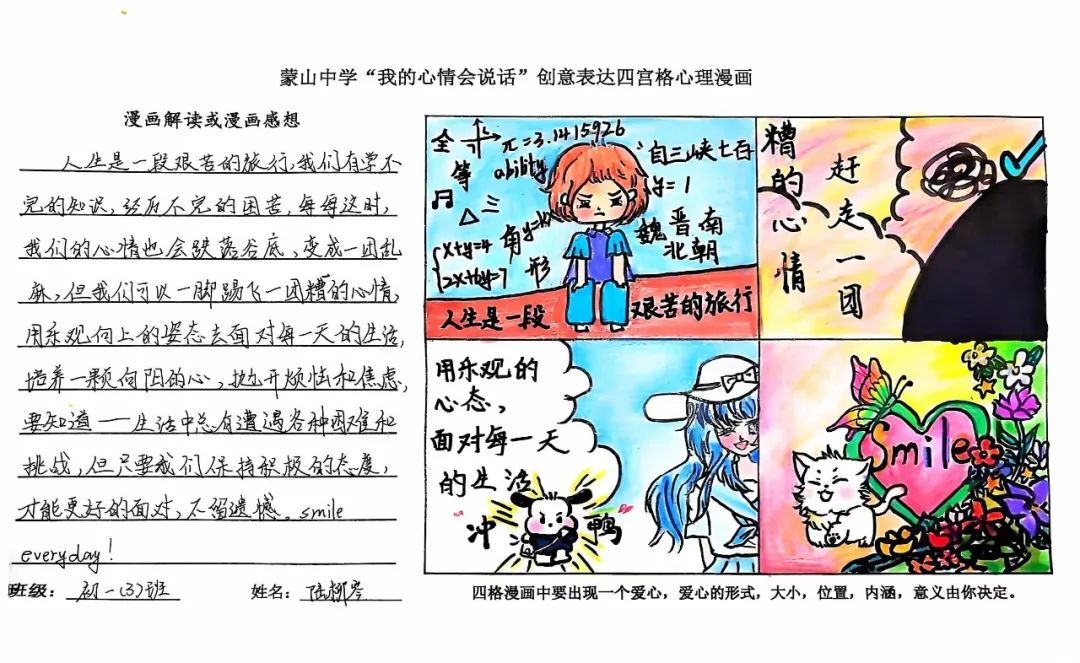 蒙山中学“我的心情会说话”创意表达四宫格心理漫画
漫画解读或漫画感想
人生是一段艰苦的旅行,我们有学不
完的知识,经历不完的困苦,每每这时,
我们的心情也会跌落谷底,变成一团乱
麻,但我们可以一脚踢飞一团糟的心情,
用乐观向上的姿态去面对每一天的生活,
培养一颗向阳的心,抛开烦恼和焦虑,
要知道——生活中总有遭遇各种困难和
挑战,但只要我们保持积极的态度,
才能更好的面对,不留遗憾。smile
everyday!
班级:初一(3)班
姓名:陆柳岑
全等
π=3.1415926
ability
自三峡七百
y=1
魏晋南
北朝
角形
y=kx
x+y=4
2x+by=7
人生是一段
艰苦的旅行
赶走一团
糟的心情
用乐观的
心态,
面对每一天
的生活
冲鸭
Smile
四格漫画中要出现一个爱心,爱心的形式,大小,位置,内涵,意义由你决定。